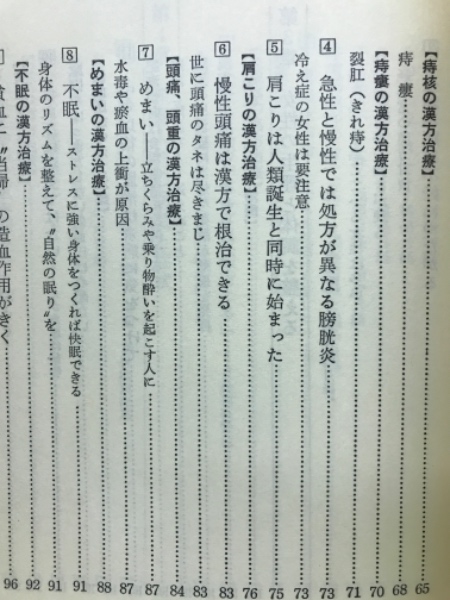 【痔核の漢方治療】……65
痔瘻……68
【痔瘻の漢方治療】……70
裂肛（きれ痔）……71
4 急性と慢性では処方が異なる膀胱炎……73
冷え症の女性は要注意……73
5 肩こりは人類誕生と同時に始まった……75
【肩こりの漢方治療】……76
6 慢性頭痛は漢方で根治できる……83
世に頭痛のタネは尽きまじ……83
【頭痛、頭重の漢方治療】……84
7 めまい——立ちくらみや乗り物酔いを起こす人に……87
水毒や瘀血の上衝が原因……87
【めまいの漢方治療】……88
8 不眠——ストレスに強い身体をつくれば快眠できる……91
身体のリズムを整えて、〝自然の眠り〟を……91
【不眠の漢方治療】……92
貧血に〝当帰〟の造血作用がきく……96